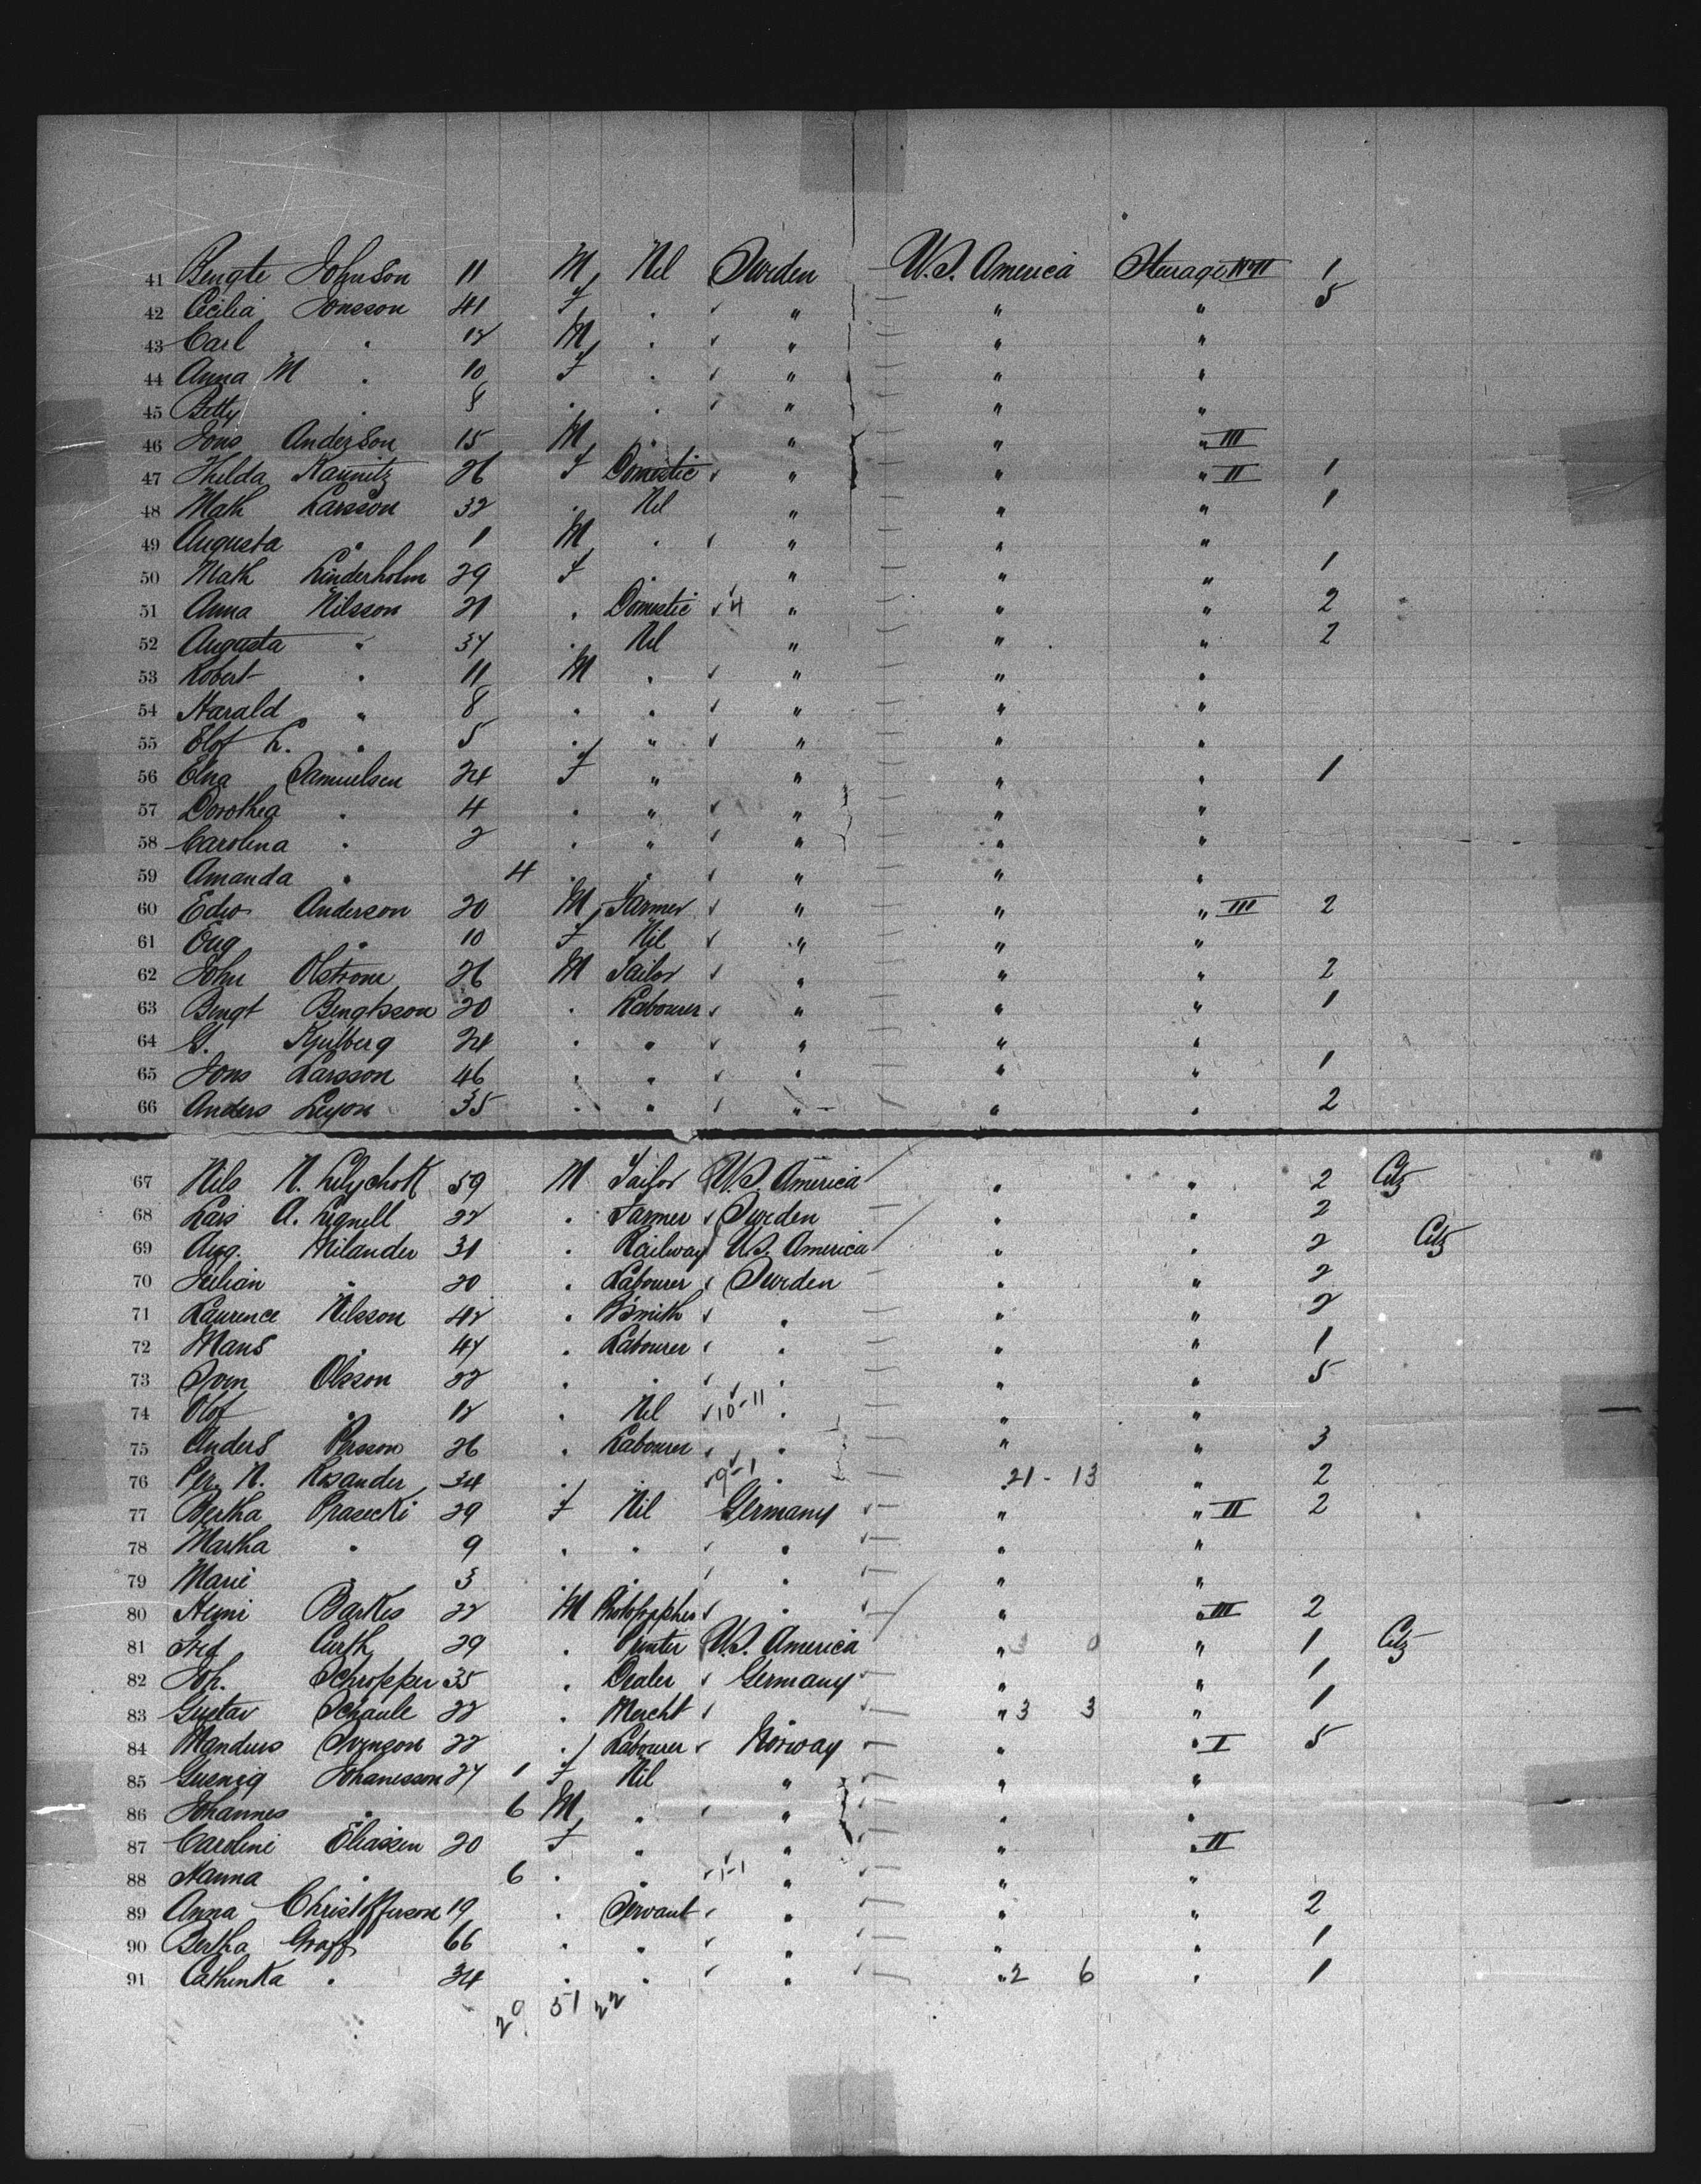 41 Bengte Johnson 11 M Nil Sweden U.S. America Steerage II 1
42 Cecilia Jonsson 41 F . " " " 5
43 Carl . 12 M . " " "
44 Anna M . 10 F . " " "
45 Betty . 8 . . " " "
46 Jons Anderson 15 M . " " " III
47 Hilda Kaunitz 26 F Domestic " " " II 1
48 Math Larsson 32 . Nil " " " 1
49 Augusta " 1 M . " " "
50 Math Linderholm 29 F . " " " 1
51 Anna Nilsson 21 . Domestic 4 " " " 2
52 Augusta " 37 . Nil " " " 2
53 Robert . 11 M . " " "
54 Harald " 8 . . " " "
55 Elof L. " 5 . " " " "
56 Elna Samuelsen 24 F " " " " 1
57 Dorothea . 4 . " " " "
58 Carolina . 2 . " " " "
59 Amanda . 4 . . " " "
60 Edw Anderson 20 M Farmer " " " III 2
61 Eug . 10 F Nil " " "
62 John Olstrom 26 M Sailor " " " 2
63 Bengt Bengtsson 20 . Labourer " " " 1
64 G. 24 . " " " "
65 Jons Larsson 46 . " " " " 1
66 Anders Leyon 35 . " " " " 2
67 Nils N. 59 M Tailor U.S. America " " 2 Citz
68 Lars A. Lignell 22 . Farmer Sweden " " 2
69 Aug. Milander 31 . Railway U.S. America " " 2 Citz
70 Julian " 20 . Labourer Sweden " " 2
71 Laurence Nilsson 42 . B'smith . " " 2
72 Mans . 47 . Labourer . " " 1
73 Sven Olsson 22 . . . " " 5
74 Olof . 12 . Nil 10-11 . " "
75 Anders Persson 26 . Labourer . " " 3
76 Per. N. Rosander 34 . . 9-1 . 21-13 " 2
77 Bertha Prasecki 29 F Nil Germany " " II 2
78 Martha . 9 . . . " "
79 Marie . 3 . . . " "
80 Barkes 22 M . " " III 2
81 Fred Curth 29 . Printer U.S. America " 3 0 " 1 Citz
82 Joh. Schropper 35 . Dealer Germany " " 1
83 Gustav Schaule 22 . Mercht " 3 3 " 1
84 Mandius Svenson 22 . Labourer Norway " " I 5
85 Johanesson 27 1 F Nil " " "
86 Johannes " 6 M . " " "
87 Caroline Eliassen 20 F " " " " II
88 Nanna . 6 . 1-1 " " "
89 Anna Christofferson 19 . Servant . " " 2
90 Bertha Graff 66 . . " " " 1
91 Cathinka . 34 . . . " 2 6 . 1
20 51 22